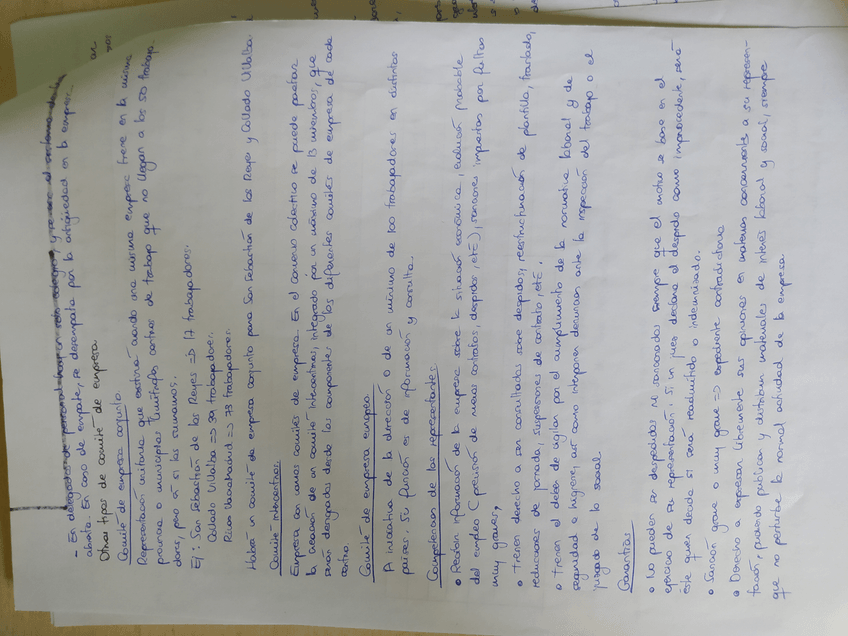 - En delegados de personal hay un solo colegio, y se usa el sistema de lista
abierta. En caso de empate, se desempata por la antigüedad en la empresa.
Otros tipos de comité de empresa.
Comité de empresa conjunto.
Representación unitaria que existirá cuando una misma empresa tiene en la misma
provincia o municipios limítrofes centros de trabajo que no llegan a los 50 trabaja-
dores, pero sí si los sumamos.
Ej: San Sebastián de los Reyes => 17 trabajadores.
Collado Villalba => 39 trabajadores.
Rivas Vaciamadrid => 78 trabajadores.
Habrá un comité de empresa conjunto para San Sebastián de los Reyes y Collado Villalba.
Comité intercentros.
Empresa con varios comités de empresa. En el convenio colectivo se puede pactar
la creación de un comité intercentros, integrado por un máximo de 13 miembros, que
serán designados desde los componentes de los diferentes comités de empresa de cada
centro.
Comité de empresa europeo
A iniciativa de la dirección o de un mínimo de 100 trabajadores en distintos
países. Su función es de información y consulta.
Competencias de los representantes:
• Recibir información de la empresa sobre la situación económica, evolución probable
del empleo (previsión de nuevos contratos, despidos, etc), sanciones impuestas por faltas
muy graves,
• Tienen derecho a ser consultados sobre despidos, reestructuración de plantilla, traslado,
reducciones de jornada, suspensiones de contrato, etc.
• Tienen el deber de vigilar por el cumplimiento de la normativa laboral y de
seguridad e higiene, así como interponer denuncias ante la inspección del trabajo o el
juzgado de lo social.
Garantías
• No pueden ser despedidos ni sancionados siempre que el motivo se base en el
ejercicio de su representación. Si un juez declara el despido como improcedente, será
éste quien decida si será readmitido o indemnizado.
• Sanción grave o muy grave => expediente contradictorio
• Derecho a expresar libremente sus opiniones en materias concernientes a su represen-
tación, pudiendo publicar y distribuir materiales de interés laboral y social, siempre
que no perturbe la normal actividad de la empresa.